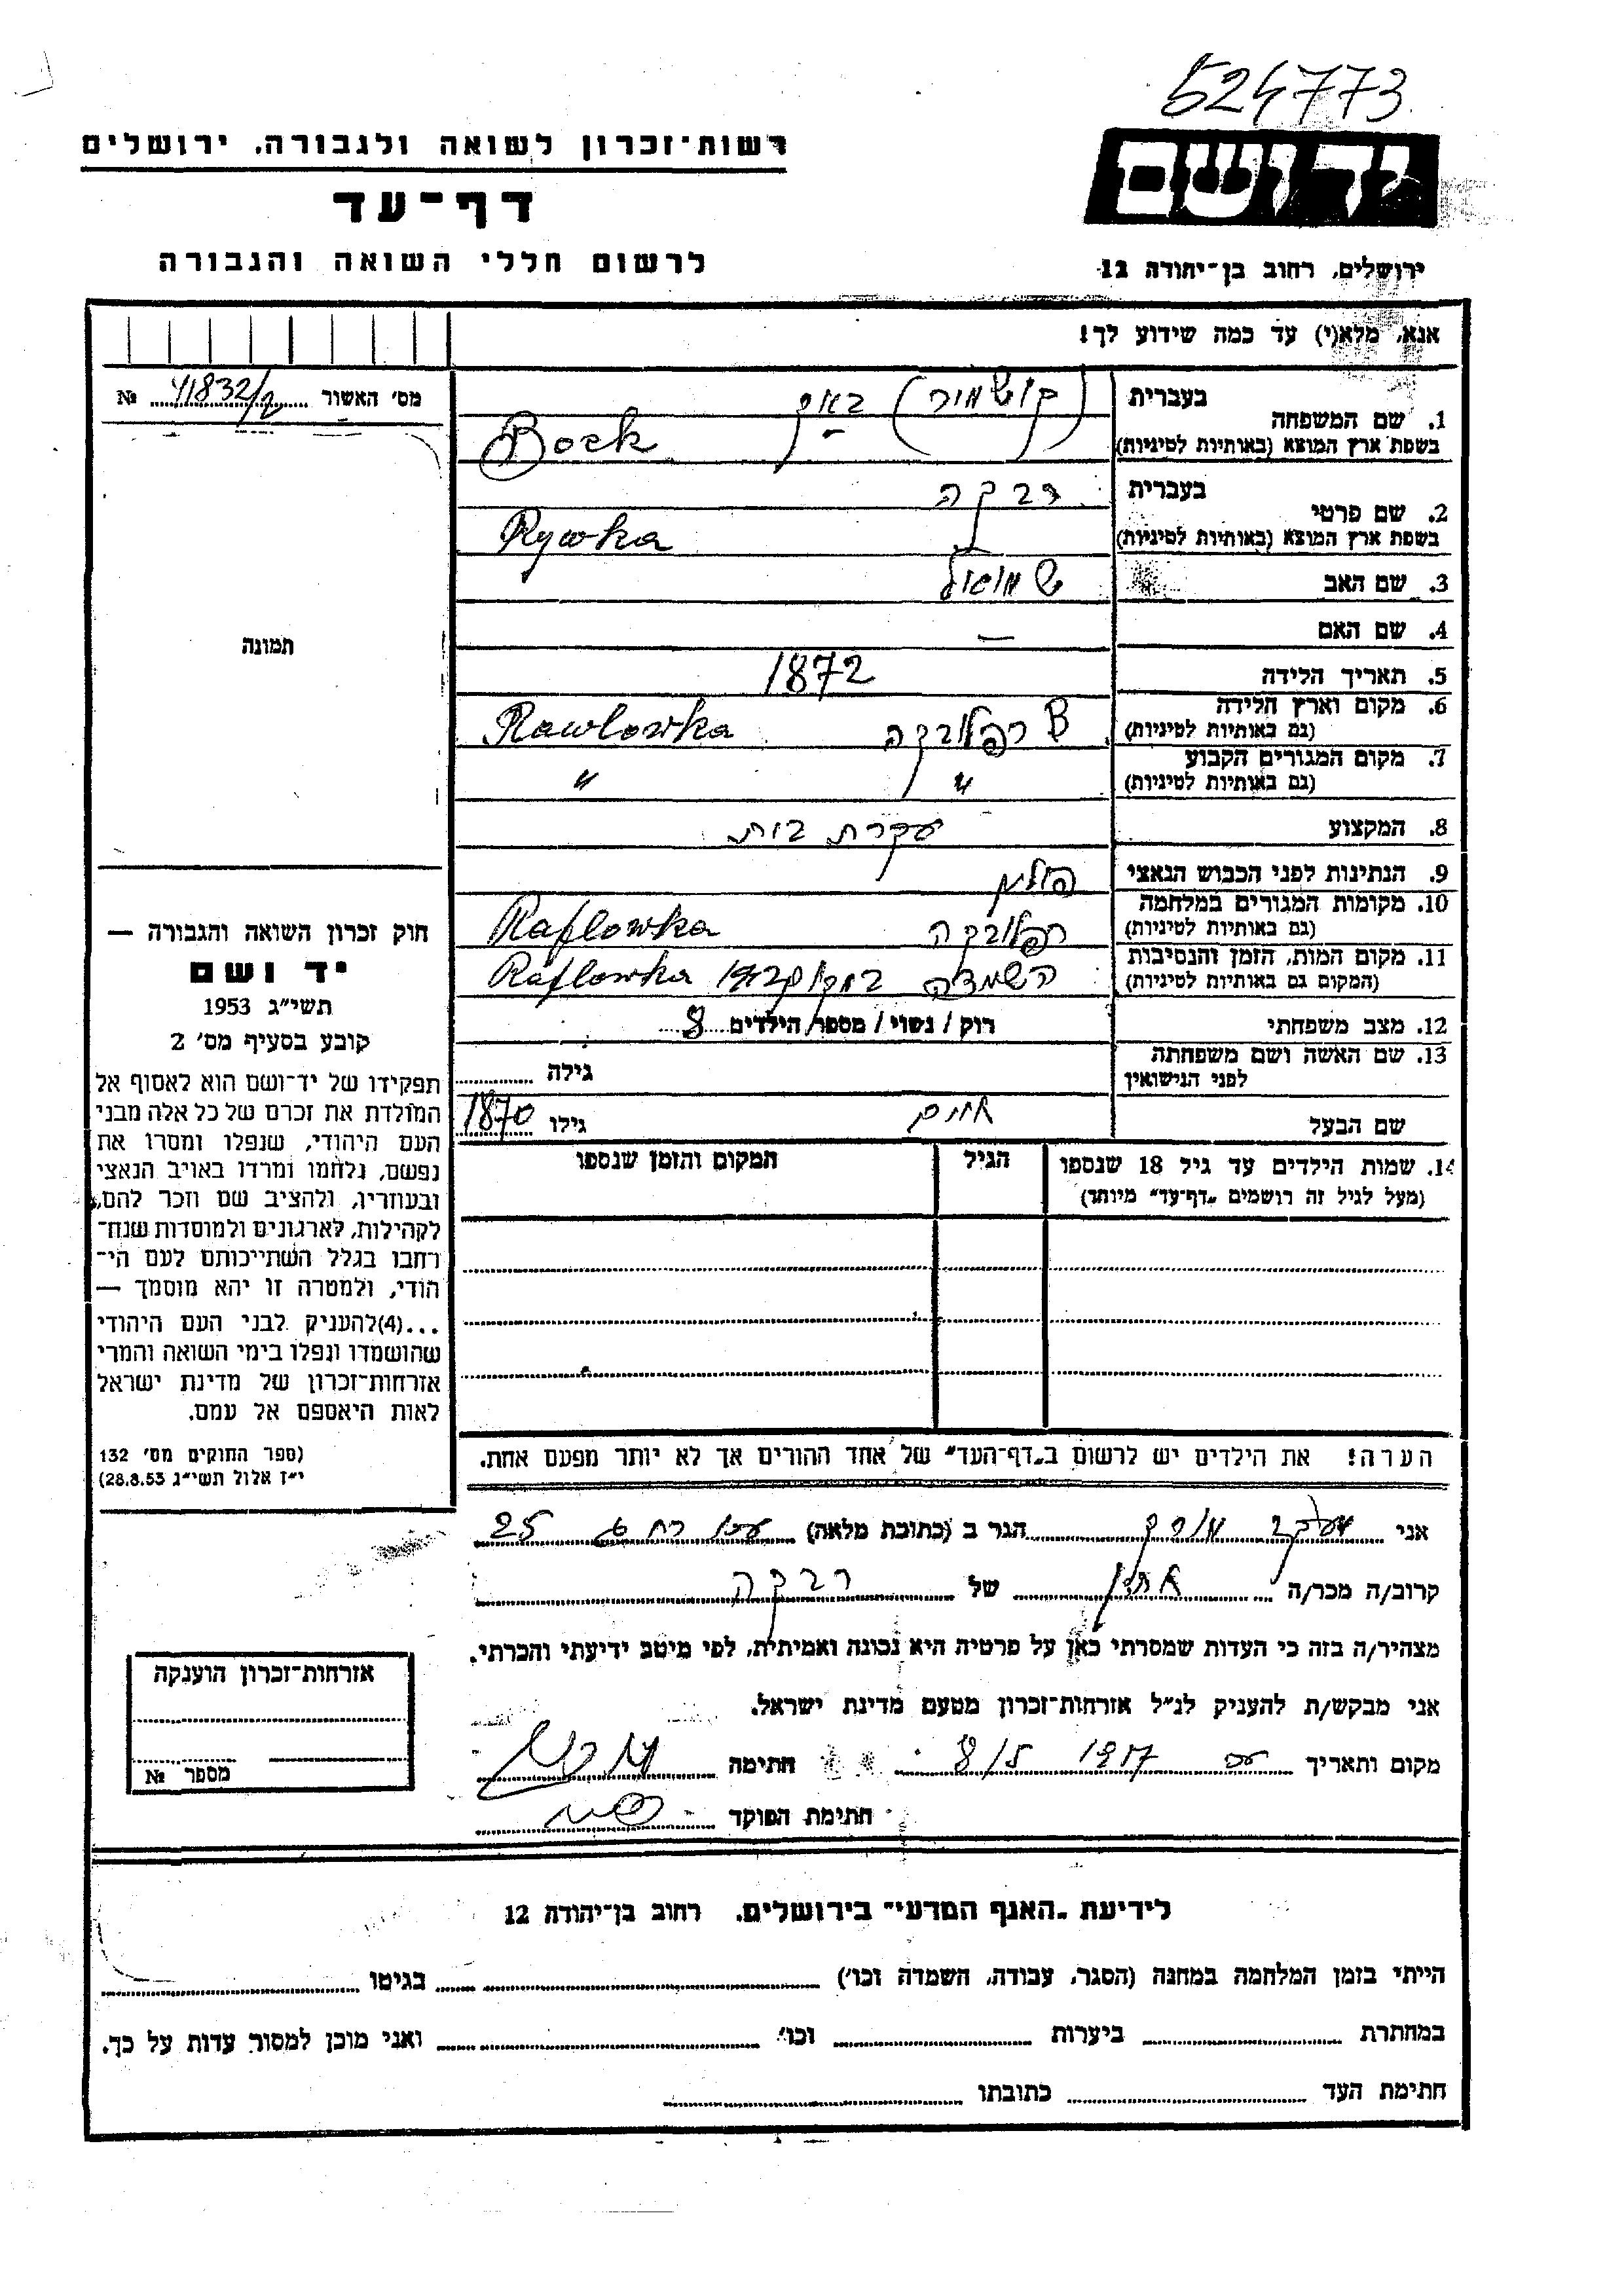 524773
רשות־זכרון לשואה ולגבורה. ירושלים
דף־עד
לרשום חללי השואה והגבורה
יד ושם
ירושלים, רחוב בן־יהודה 12
אנא, מלא(י) עד כמה שידוע לך!
מס׳ האשור 41832/2 №
תמונה
1. שם המשפחה
בעברית (קושמיר) באק
בשפת ארץ המוצא (באותיות לטיניות) Bock
2. שם פרטי
בעברית רבקה
בשפת ארץ המוצא (באותיות לטיניות) Rywka
3. שם האב שמואל
4. שם האם —
5. תאריך הלידה 1872
6. מקום וארץ הלידה
(גם באותיות לטיניות) רפלובקה Rawlowka
7. מקום המגורים הקבוע
(גם באותיות לטיניות) " "
8. המקצוע עקרת בית
9. הנתינות לפני הכבוש הנאצי פולין
10. מקומות המגורים במלחמה
(גם באותיות לטיניות) רפלובקה Raflowka
11. מקום המות, הזמן והנסיבות
(המקום גם באותיות לטיניות) השמדה Raflowka
12. מצב משפחתי רוק / נשוי / מספר הילדים 8
13. שם האשה ושם משפחתה
לפני הנישואין גילה
שם הבעל חיים גילו 1870
14. שמות הילדים עד גיל 18 שנספו
(מעל לגיל זה רושמים „דף־עד״ מיוחד)
הגיל
המקום והזמן שנספו
הערה! את הילדים יש לרשום ב„דף־העד״ של אחד ההורים אך לא יותר מפעם אחת.
חוק זכרון השואה והגבורה —
יד ושם
תשי״ג 1953
קובע בסעיף מס׳ 2
תפקידו של יד־ושם הוא לאסוף אל
המולדת את זכרם של כל אלה מבני
העם היהודי, שנפלו ומסרו את
נפשם, נלחמו ומרדו באויב הנאצי
ובעוזריו, ולהציב שם וזכר להם,
לקהילות, לארגונים ולמוסדות שנח־
רחבו בגלל השתייכותם לעם הי־
הודי, ולמטרה זו יהא מוסמך —
...(4)להעניק לבני העם היהודי
שהושמדו ונפלו בימי השואה והמרי
אזרחות־זכרון של מדינת ישראל
לאות היאספם אל עמם.
(ספר החוקים מס׳ 132
י״ז אלול תשי״ג 28.8.53)
אני יעקב הגר ב (כתובת מלאה) 25
קרוב/ה מכר/ה של רבקה
מצהיר/ה בזה כי העדות שמסרתי כאן על פרטיה היא נכונה ואמיתית, לפי מיטב ידיעתי והכרתי.
אני מבקש/ת להעניק לנ״ל אזרחות־זכרון מטעם מדינת ישראל.
מקום ותאריך חתימה
חתימת הפוקד
אזרחות־זכרון הוענקה
מספר №
לידיעת „האגף המדעי״ בירושלים, רחוב בן־יהודה 12
הייתי בזמן המלחמה במחנה (הסגר, עבודה, השמדה וכו׳) בגיטו
במחתרת ביערות וכו׳ ואני מוכן למסור עדות על כך.
חתימת העד כתובתו